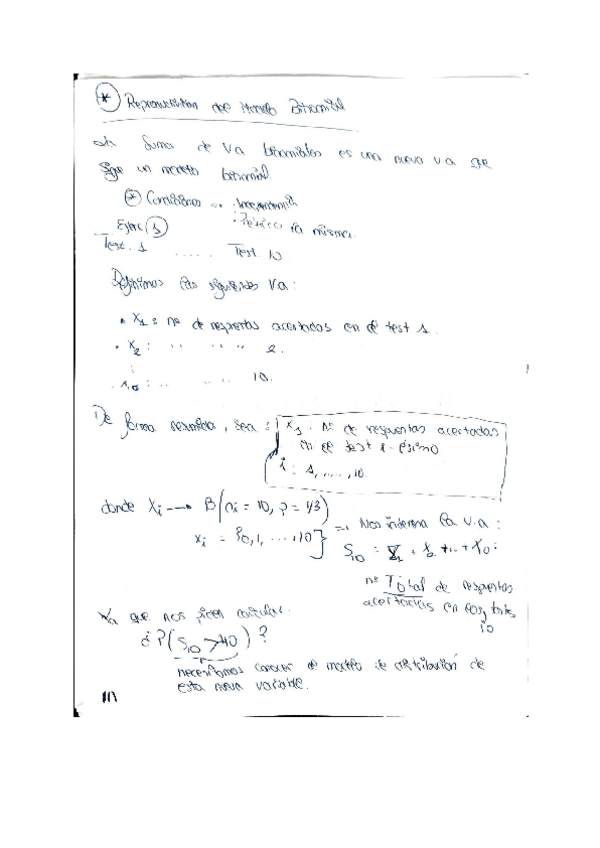 * Reproductividad del Modelo Binomial
La Suma de Va binomiales es una nueva va que
sigue un modelo binomial.
* Condiciones → · Independencia
· Pexito la misma.
Ejerc 1
Test. 1 ..... Test. 10
Definimos las siguientes Va:
• X1 = nº de respuestas acertadas en el test 1.
• X2 : .. .. .. .. 2.
⋮
X10 : .. .. .. .. 10.
De forma resumida, sea : Xi : nº de respuestas acertadas
en el test i-ésimo
i : 1, ...., 10
donde Xi → B(ni = 10, p = 1/3)
xi = {0, 1, ..., 10} → Nos interesa la v.a :
S10 = X1 + X2 + .. + X10 :
nº Total de respuestas
acertadas en los tests
10
Ya que nos piden calcular:
¿P(S10 > 40)?
necesitamos conocer el modelo de distribución de
esta nueva variable.